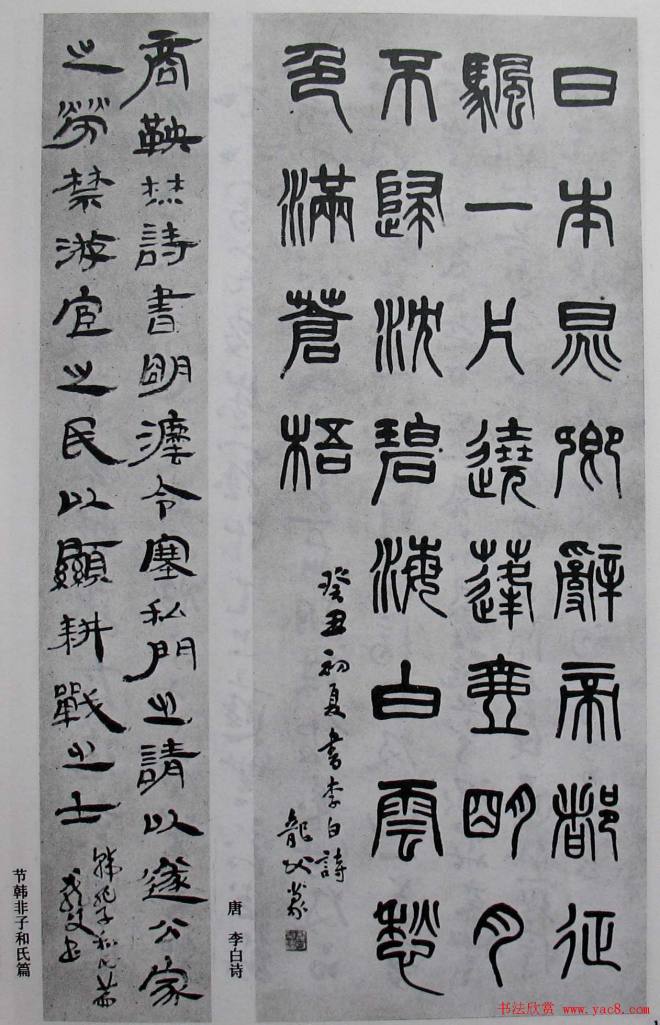 日本晁卿辭帝都征
颿一片遶蓬壺明月
不歸沈碧海白雲愁
色滿蒼梧
癸丑初夏書李白詩
龍父篆
唐 李白诗
商鞅焚詩書明灋令塞私門之請以遂公家
之勞禁游宦之民以顯耕戰之士
韓非子和氏篇
节韩非子和氏篇
书法欣赏 www.yac8.com